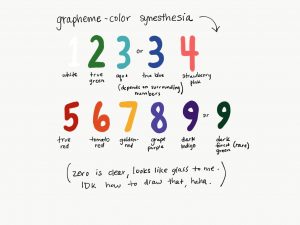 grapheme-color synesthesia
1 2 3 or 3 4
white true green aqua true blue strawberry pink
(depends on surrounding numbers)
5 6 7 8 9 or 9
true red tomato red golden-rod grape purple dark indigo dark forest (rare) green
(zero is clear, looks like glass to me.
IDK how to draw that, haha.)